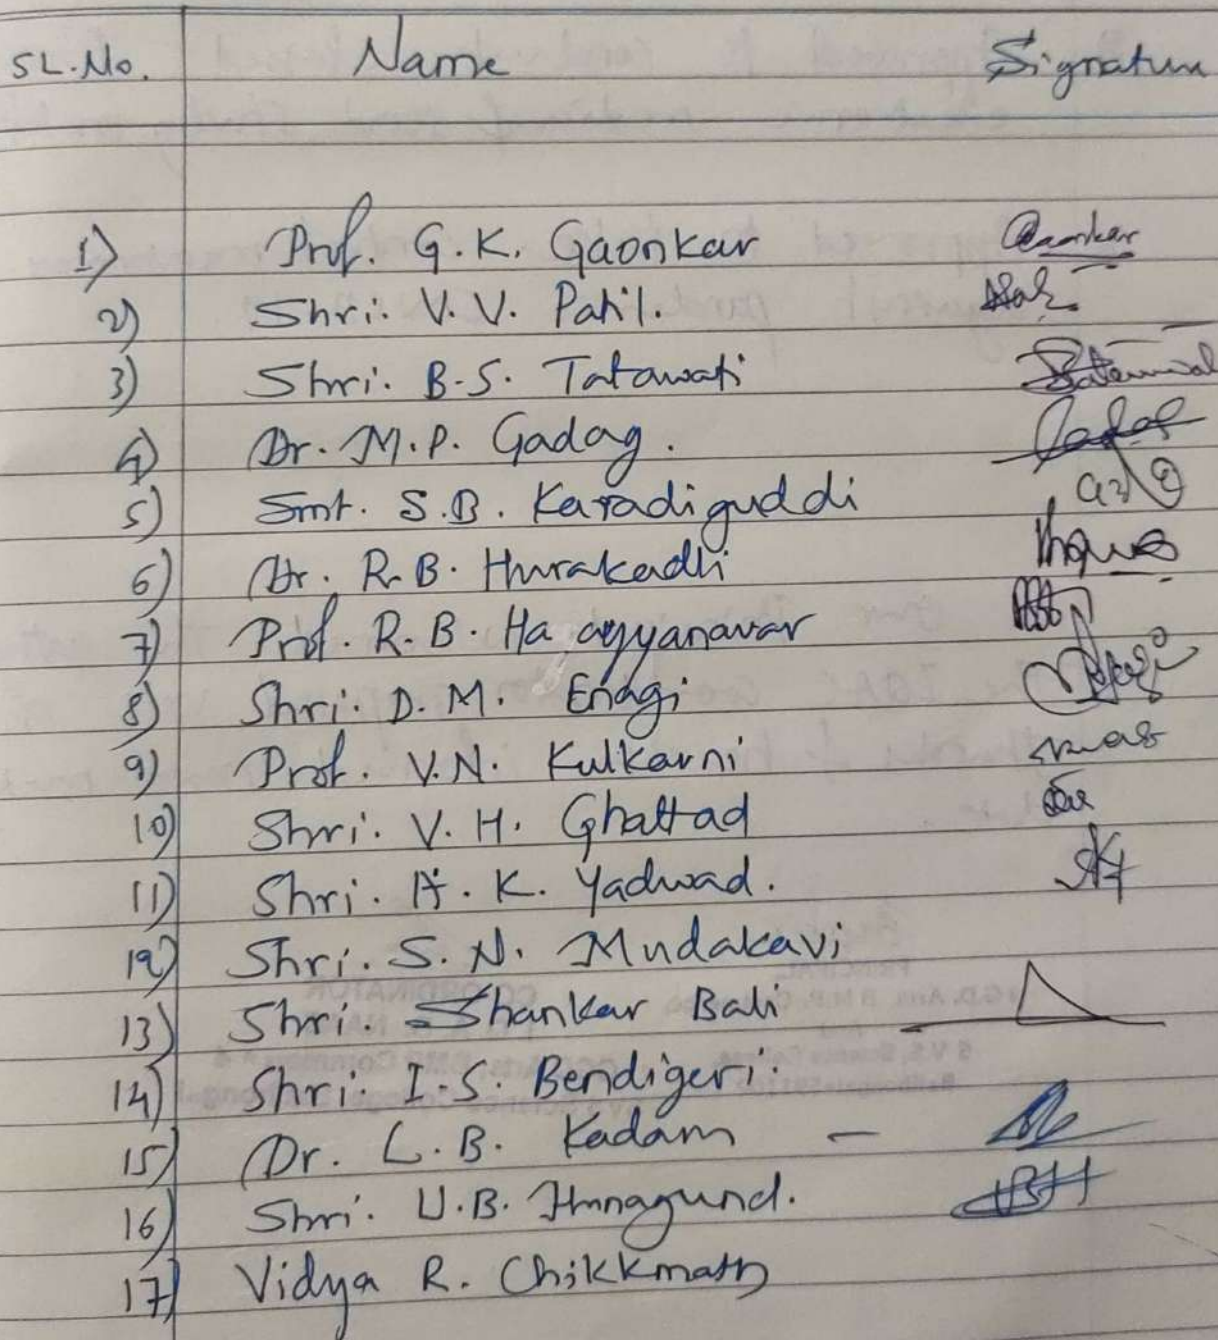 SL.No. Name Signature
1) Prof. G.K. Gaonkar Gaonkar
2) Shri. V.V. Patil.
3) Shri. B.S. Tatawati
4) Dr. M.P. Gadag.
5) Smt. S.B. Karadiguddi
6) Dr. R.B. Hurakadli
7) Prof. R.B. Ha ayyanavar
8) Shri. D.M. Enagi
9) Prof. V.N. Kulkarni
10) Shri. V.H. Ghattad
11) Shri. A.K. Yadwad.
12) Shri. S.N. Mudakavi
13) Shri. Shankar Bali
14) Shri. I.S. Bendigeri.
15) Dr. L.B. Kadam –
16) Shri. U.B. Hunagund.
17) Vidya R. Chikkmath